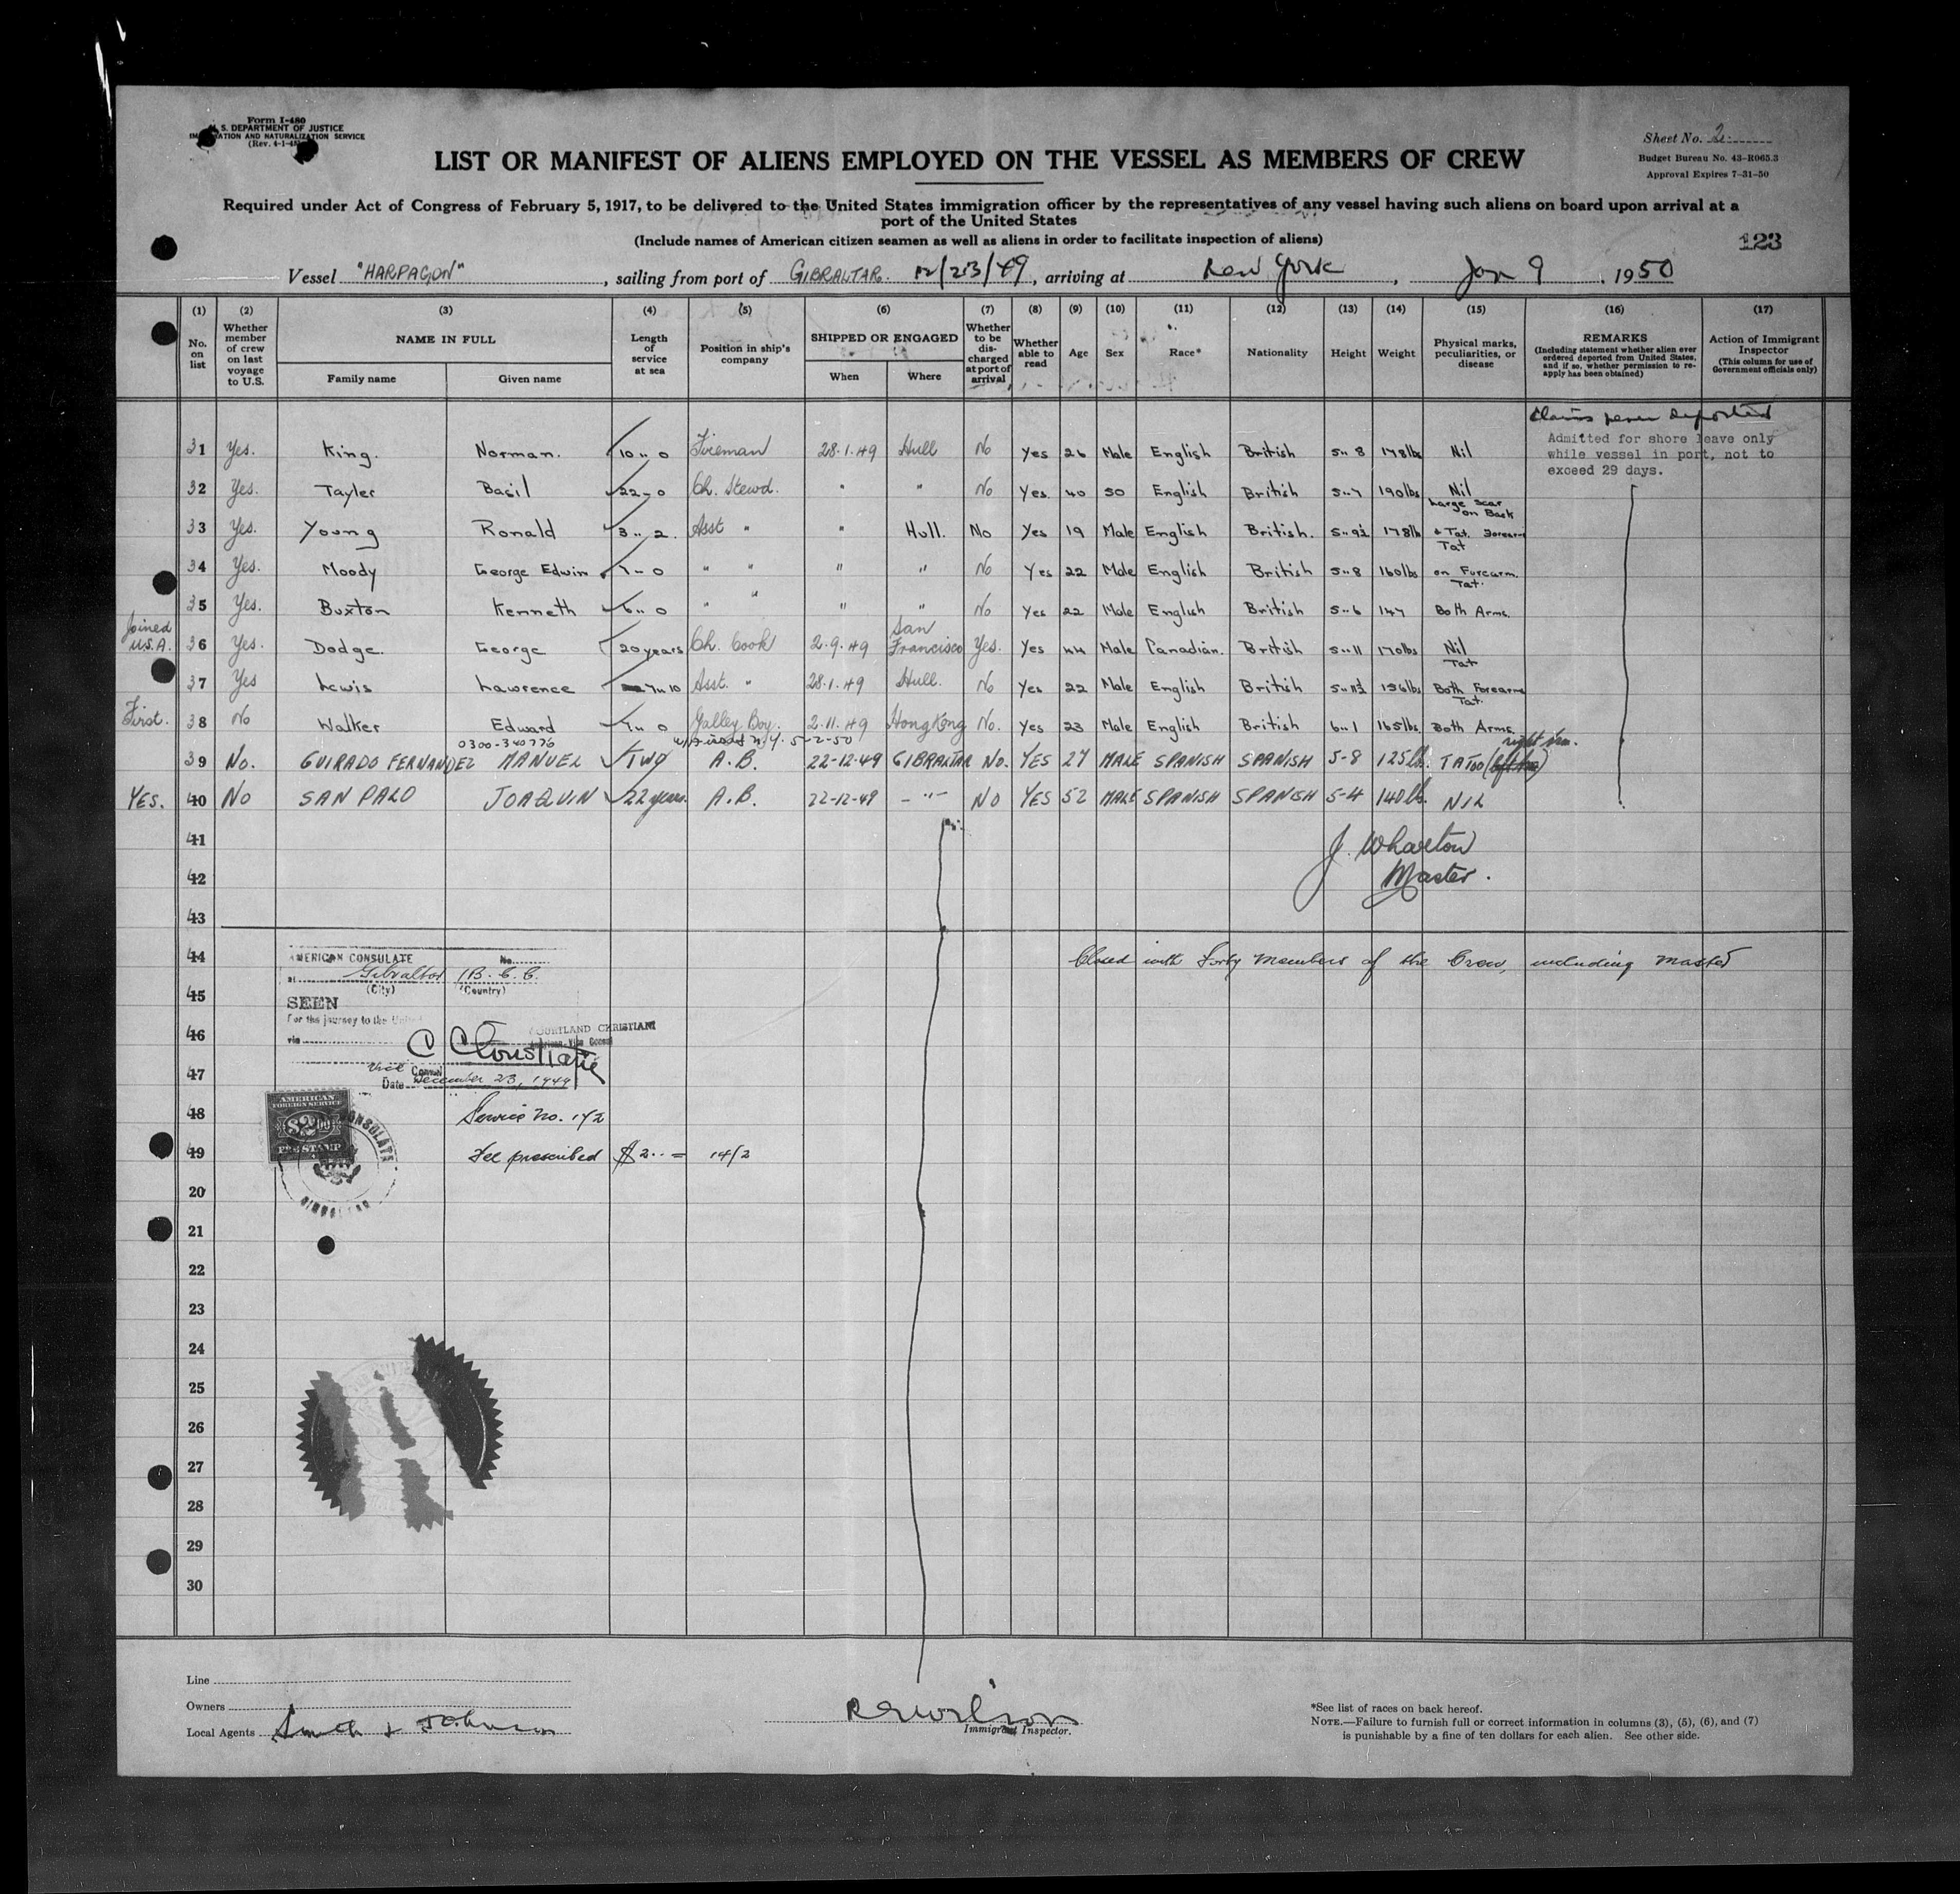 Form I-480
U. S. DEPARTMENT OF JUSTICE
IMMIGRATION AND NATURALIZATION SERVICE
(Rev. 4-1-48)
Sheet No. 2
Budget Bureau No. 43-R065.3
Approval Expires 7-31-50
LIST OR MANIFEST OF ALIENS EMPLOYED ON THE VESSEL AS MEMBERS OF CREW
Required under Act of Congress of February 5, 1917, to be delivered to the United States immigration officer by the representatives of any vessel having such aliens on board upon arrival at a
port of the United States
(Include names of American citizen seamen as well as aliens in order to facilitate inspection of aliens)
123
Vessel "HARPAGON", sailing from port of GIBRALTAR. 12/23/49, arriving at New York, Jan 9, 1950
(1) (2) (3) (4) (5) (6) (7) (8) (9) (10) (11) (12) (13) (14) (15) (16) (17)
No. on list
Whether member of crew on last voyage to U.S.
NAME IN FULL
Family name
Given name
Length of service at sea
Position in ship's company
SHIPPED OR ENGAGED
When
Where
Whether to be discharged at port of arrival
Whether able to read
Age
Sex
Race*
Nationality
Height
Weight
Physical marks, peculiarities, or disease
REMARKS
(Including statement whether alien ever ordered deported from United States, and if so, whether permission to re-apply has been obtained)
Action of Immigrant Inspector
(This column for use of Government officials only)
Claims never deported
Admitted for shore leave only
while vessel in port, not to
exceed 29 days.
31 Yes. King. Norman. 10 " 0 Fireman 28.1.49 Hull No Yes 26 Male English British 5 " 8 178lbs Nil
32 Yes. Tayler Basil 22-0 Ch. Stewd. " " No Yes. 40 so English British 5-7 190lbs Nil
33 Yes. Young Ronald 3 " 2. Asst " " Hull. No Yes 19 Male English British. 5 " 9½ 178lb Large Scar on Back & Tat. Forearm
34 Yes. Moody George Edwin 7-0 " " " " No Yes 22 Male English British 5 " 8 160lbs Tat on Forearm.
35 Yes. Buxton Kenneth 6 " 0 " " " " No Yes 22 Male English British 5 " 6 147 Tat. Both Arms.
Joined U.S.A. 36 Yes. Dodge. George 20 years Ch. Cook 2.9.49 San Francisco Yes. Yes 44 Male Canadian. British 5 " 11 170lbs Nil
37 Yes Lewis Lawrence 7 " 10 Asst. " 28.1.49 Hull. No Yes 22 Male English British 5 " 11½ 156lbs Tat Both Forearms
First. 38 No Walker Edward 1 " 0 Galley Boy. 2.11.49 Hong Kong No. Yes 23 Male English British 6 " 1 165lbs. Tat. Both Arms.
0300-340776 N.Y. 5-2-50
39 No. GUIRADO FERNANDEZ MANUEL TWO A.B. 22-12-49 GIBRALTAR No. YES 27 MALE SPANISH SPANISH 5-8 125 lb. TATOO right Arm.
YES. 40 No SAN PALO JOAQUIN 22 years. A.B. 22-12-49 - " - No YES 52 MALE SPANISH SPANISH 5-4 140 lb. NIL
41
J. Wharton
42
Master.
43
44
Closed with Forty Members of the Crew, including Master
AMERICAN CONSULATE No.
at Gibraltar (B. C. C.
(City) (Country)
45
SEEN
For the journey to the United
46
COURTLAND CHRISTIANI
American Vice Consul
via
C Christiani
47
Vice Consul
Date December 23, 1949
48
Service No. 142
AMERICAN
FOREIGN SERVICE
$2.00
FEE STAMP
CONSULATE
GIBRALTAR
49
Fee prescribed $2.. = 14/2
20
21
22
23
24
25
26
27
28
29
30
Line
Owners
Local Agents Smith & Johnson
Immigrant Inspector.
*See list of races on back hereof.
NOTE.—Failure to furnish full or correct information in columns (3), (5), (6), and (7)
is punishable by a fine of ten dollars for each alien. See other side.